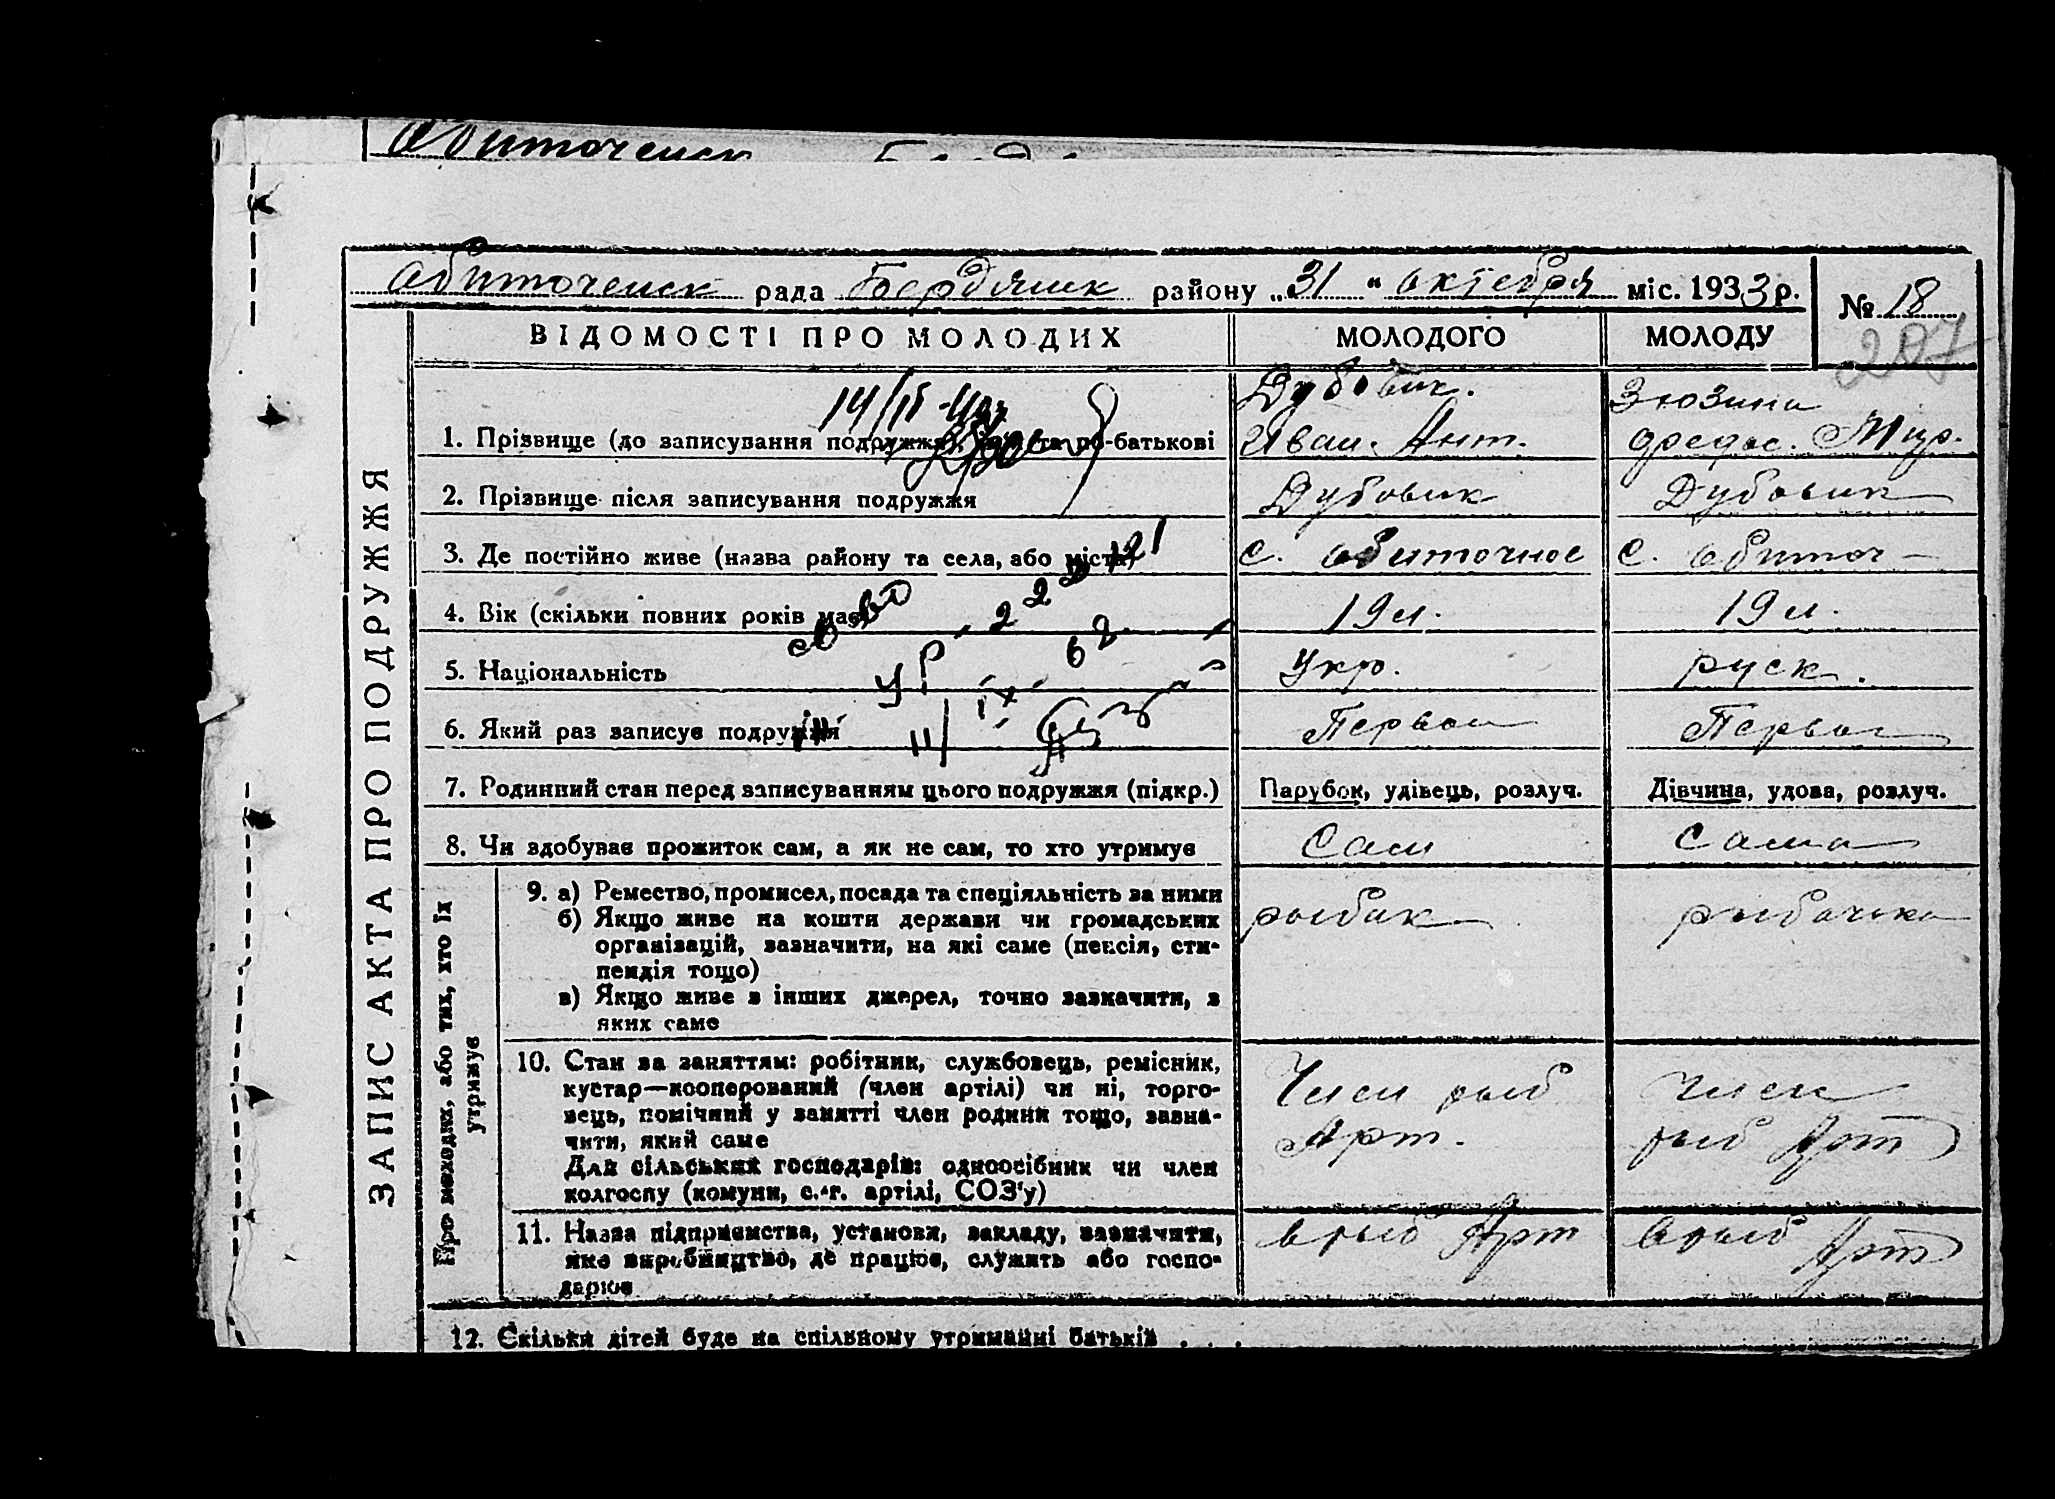 Обиточенск рада Бердянск району „31“ октебря міс. 1933 р. № 18
207
ВІДОМОСТІ ПРО МОЛОДИХ МОЛОДОГО МОЛОДУ
ЗАПИС АКТА ПРО ПОДРУЖЖЯ
Дубовик. Зюзина
1. Прізвище (до записування подружжя), та по-батькові Иван. Ант.
2. Прізвище після записування подружжя Дубовик Дубовик
3. Де постійно живе (назва району та села, або міста) с. Обиточное с. Обиточ-
4. Вік (скільки повних років має) 19 л. 19 л.
5. Національність Укр. руск.
6. Який раз записує подружжя Первый Первый
7. Родинний стан перед записуванням цього подружжя (підкр.) Парубок, удівець, розлуч. Дівчина, удова, розлуч.
8. Чи здобуває прожиток сам, а як не сам, то хто утримує Сам Сама
Про молодих, або тих, хто їх
утримує
9. а) Ремество, промисел, посада та спеціяльність за ними рыбак рыбачка
б) Якщо живе на кошти держави чи громадських
організацій, зазначити, на які саме (пенсія, сти-
пендія тощо)
в) Якщо живе з інших джерел, точно зазначити, з
яких саме
10. Стан за заняттям: робітник, службовець, ремісник, Член рыб член
кустар—кооперований (член артілі) чи ні, торго- Арт. рыб Арт
вець, помічний у занятті член родини тощо, зазна-
чити, який саме
Для сільських господарів: одноосібник чи член
колгоспу (комуни, с.-г. артілі, СОЗ'у)
11. Назва підприємства, установи, закладу, зазначити, в рыб Арт в рыб Арт
яке виробництво, де працює, служить або госпо-
дарює
12. Скільки дітей буде на спільному утриманні батьків . . .